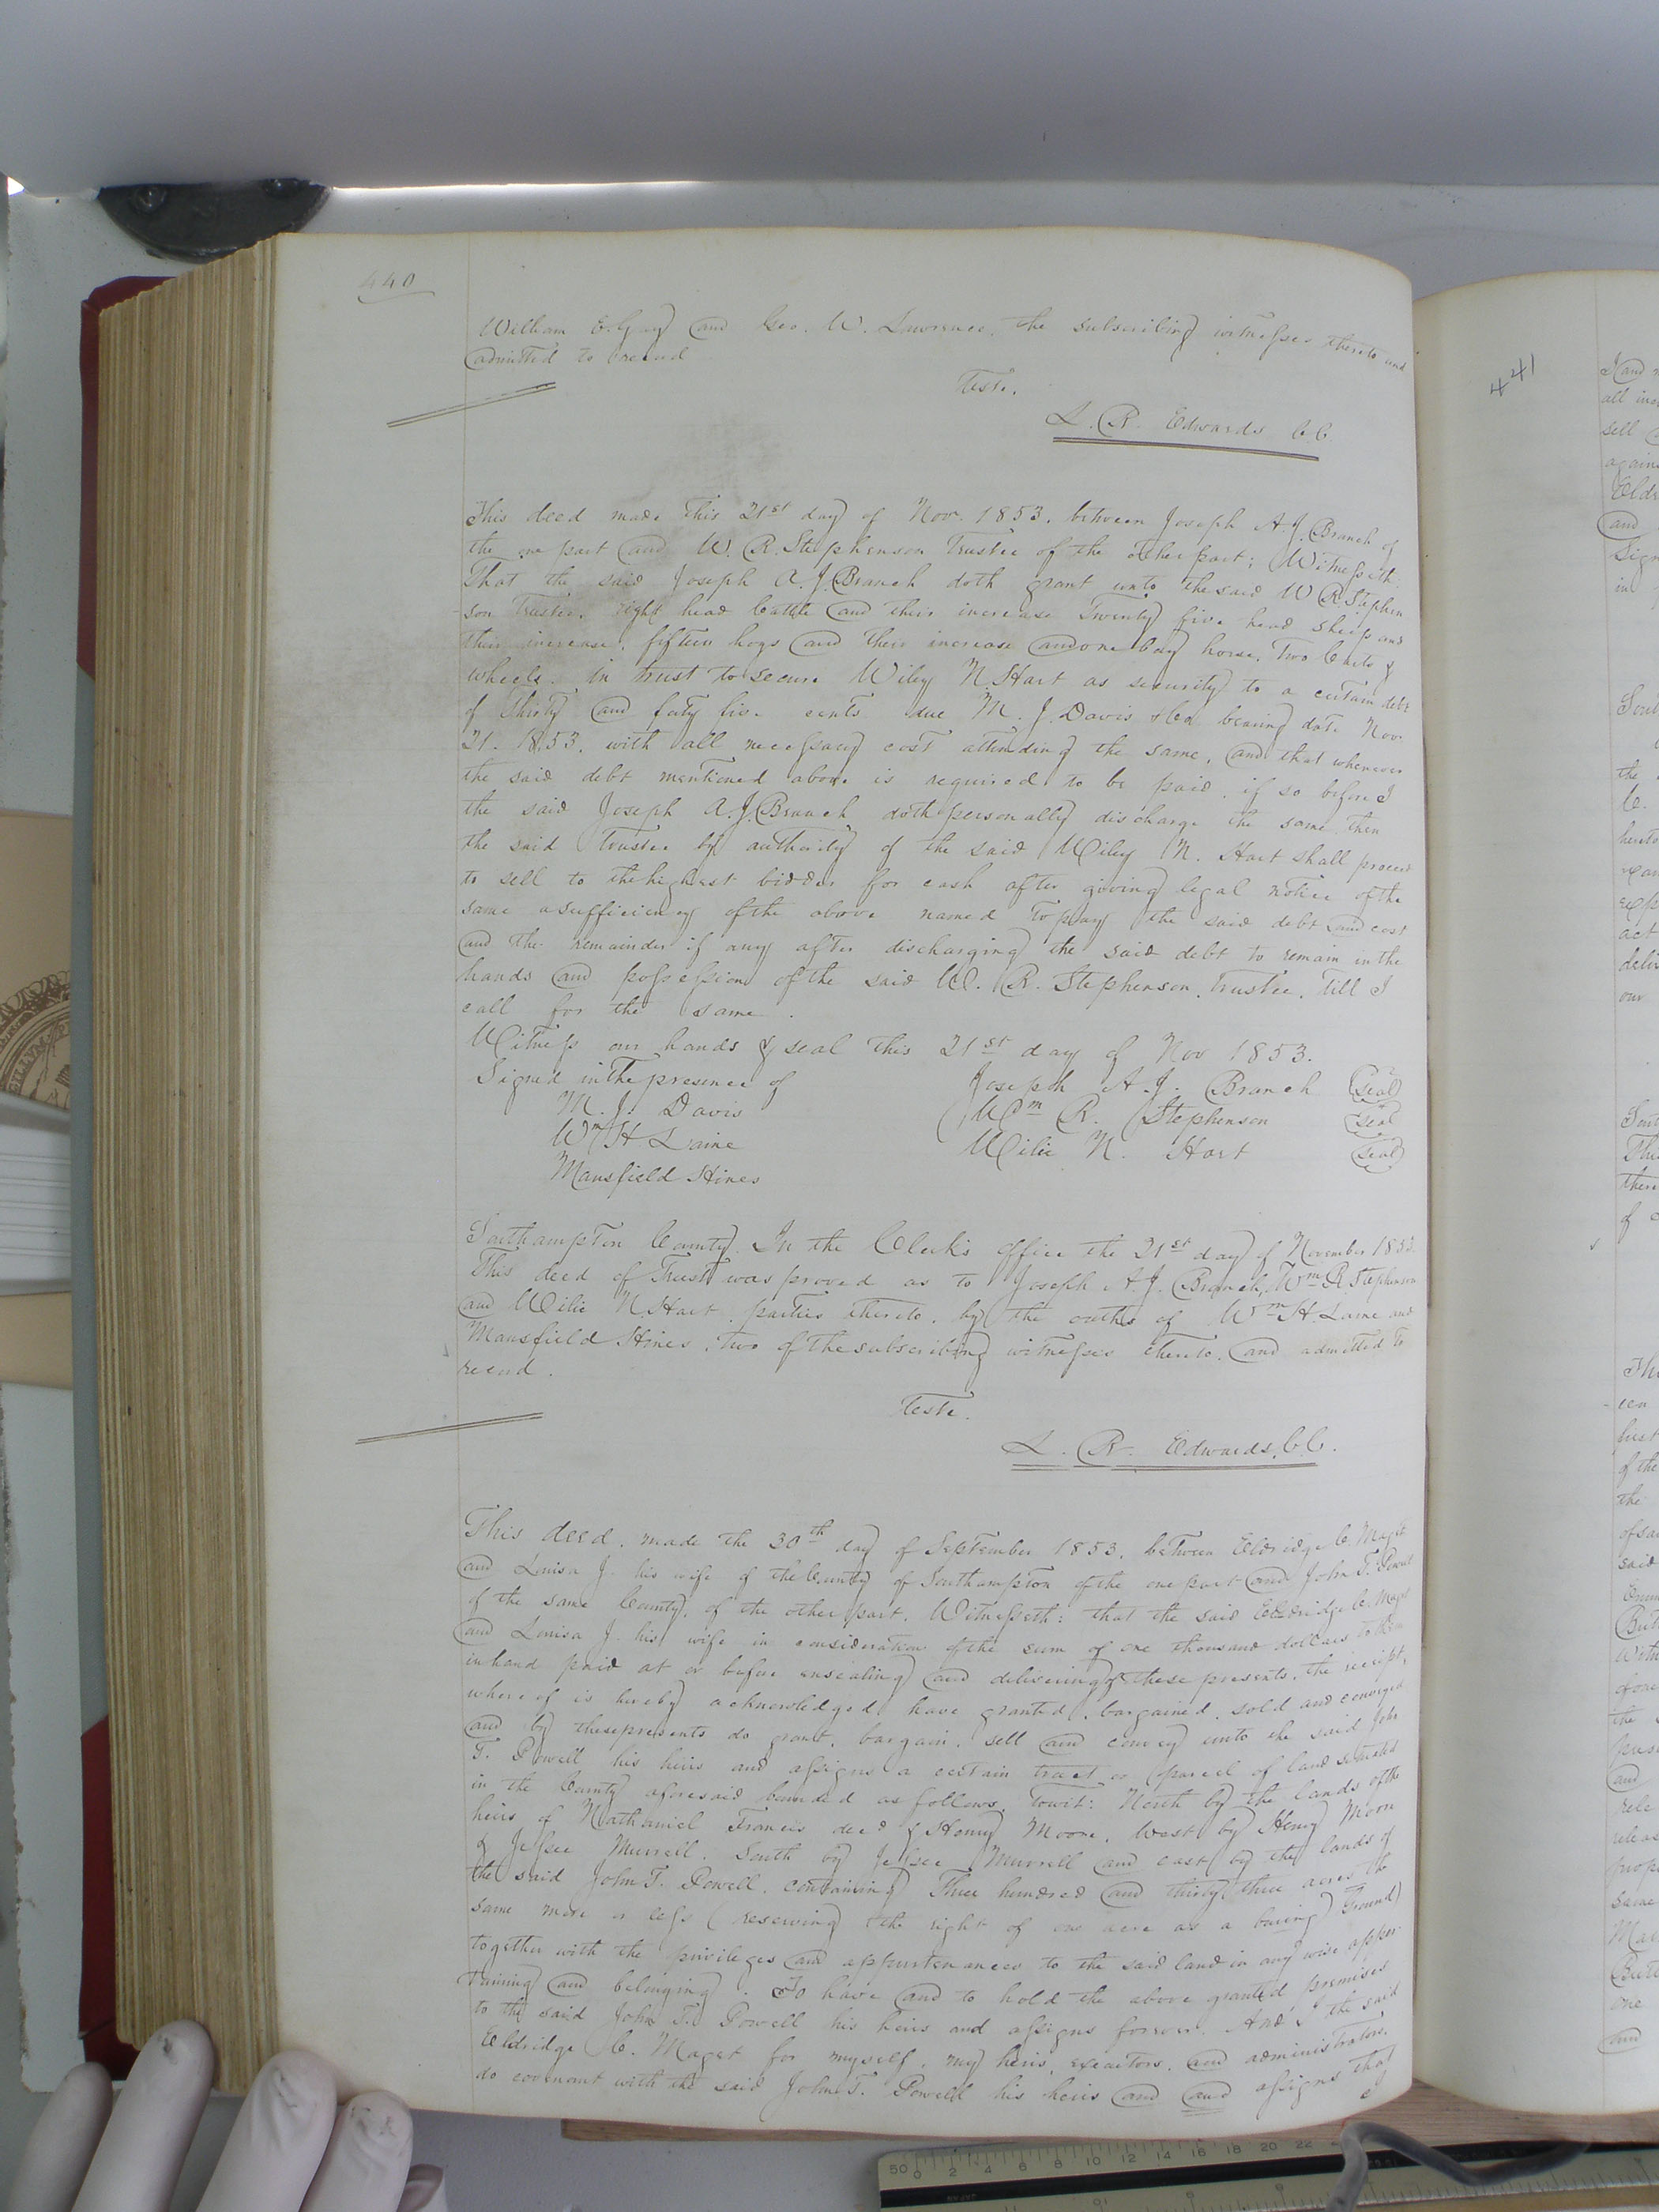 440
William E. Gay and Geo. W. Lawrence, the subscribing witnesses thereto and
admitted to record
Teste.
L. R. Edwards C.C.
This deed made this 21st day of Nov. 1853. between Joseph A. J. Branch of
the one part and W. R. Stephenson Trustee of the other part; Witnesseth
That the said Joseph A. J. Branch doth grant unto the said W R Stephen
son Trustee. eight head Cattle and their increase Twenty five head sheep and
their increase, fifteen hogs and their increase and one bay horse, Two Carts &
wheels. in trust to secure Wiley N. Hart as security to a certain debt
of Thirty and forty five cents due M. J. Davis & Co bearing date Nov
21. 1853. with all necessary cost attending the same, and that whenever
the said debt mentioned above is required to be paid, if so before I
the said Joseph A. J. Branch doth personally discharge the same, then
the said Trustee by authority of the said Wiley N. Hart shall proceed
to sell to the highest bidder for cash after giving legal notice of the
same a sufficiency of the above named to pay the said debt and cost
and the remainder if any after discharging the said debt to remain in the
hands and possession of the said W. R. Stephenson, Trustee, Till I
call for the same.
Witness our hands & seal this 21st day of Nov 1853.
Signed in the presence of
Joseph A. J. Branch (seal)
M. J. Davis
Wm R. Stephenson (seal
Wm H Laine
Wilie N. Hart (seal)
Mansfield Hines
Southampton County. In the Clerk's office the 21st day of November 1853
This deed of Trust was proved as to Joseph A. J. Branch, Wm R. Stephenson
and Wilie N. Hart, parties thereto, by the oaths of Wm H. Laine and
Mansfield Hines, two of the subscribing witnesses thereto, and admitted to
record.
Teste.
L. R. Edwards, C.C.
This deed, made the 30th day of September 1853. between Eldridge C. Maget
and Louisa J. his wife of the County of Southampton of the one part and John T. Powell
of the same County, of the other part. Witnesseth: that the said Eldridge C. Maget
and Louisa J. his wife in consideration of the sum of one thousand dollars to them
in hand paid at or before ensealing and delivering of these presents, the receipt,
where of is hereby acknowledged, have granted, bargained, sold and conveyed
and by these presents do grant, bargain, sell and convey unto the said John
T. Powell his heirs and assigns a certain tract or parcel of land situated
in the County aforesaid bounded as follows, Towit: North by the lands of the
heirs of Nathaniel Francis decd & Henry Moore, West by Henry Moore
& Jessee Murrell, South by Jessee Murrell and east by the lands of
the said John T. Powell, containing Three hundred and thirty three acres be
same more or less (reserving the right of one acre as a buring Ground)
together with the privileges and appurtenances to the said land in any wise apper
taining and belonging. To have and to hold the above granted premises
to the said John T. Powell his heirs and assigns forever. And I the said
Eldridge C. Maget for myself, my heirs, executors, and administrators.
do covenant with the said John T. Powell his heirs and and assigns that
I
441